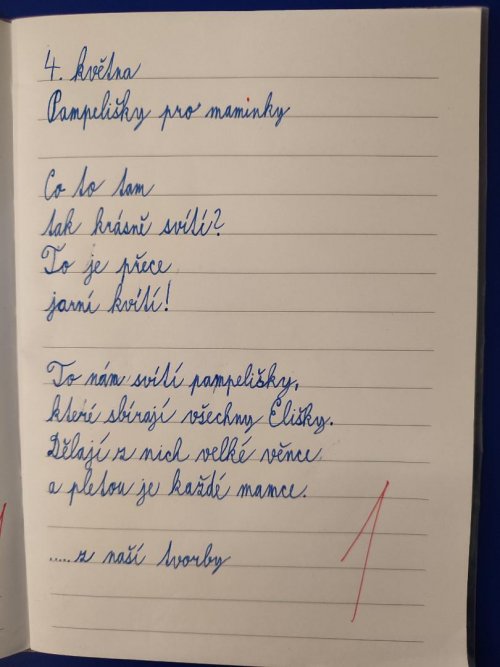 4. května
Pampelišky pro maminky
Co to tam
tak krásně svítí?
To je přece
jarní kvítí!
To nám svítí pampelišky,
které sbírají všechny Elišky.
Dělají z nich velké věnce
a pletou je každé mamce.
.....z naší tvorby
1